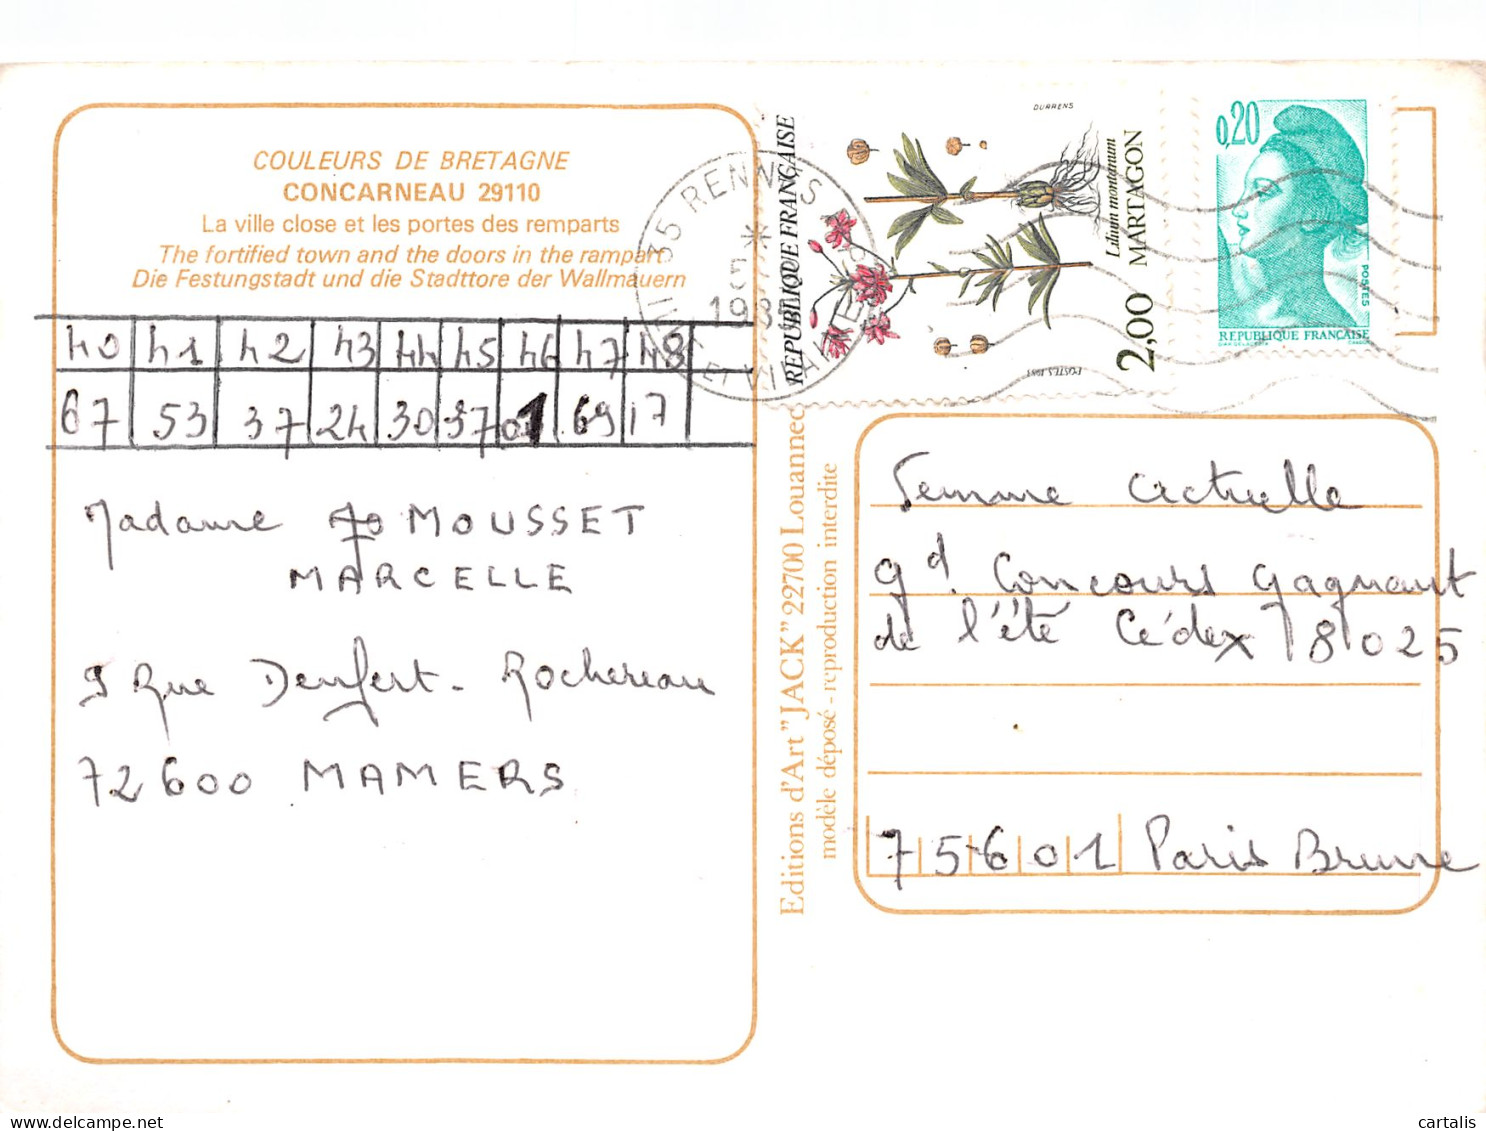 COULEURS DE BRETAGNE
CONCARNEAU 29110
La ville close et les portes des remparts
The fortified town and the doors in the rampart
Die Festungstadt und die Stadttore der Wallmauern
40 41 42 43 44 45 46 47 48
67 53 37 24 30 37 01 69 17
Madame MOUSSET
MARCELLE
9 Rue Denfert-Rochereau
72600 MAMERS
Editions d'Art "JACK" 22700 Louannec
modèle déposé - reproduction interdite
35 RENNES
ET VILAINE
RÉPUBLIQUE FRANÇAISE
DURRENS
Lilium montanum
MARTAGON
2,00
POSTES 1983
0,20
POSTES
REPUBLIQUE FRANÇAISE
Semaine Actuelle
gd. Concours gagnant
de l'été Cédex 18025
75601 Paris Brune
cartalis
delcampe.net